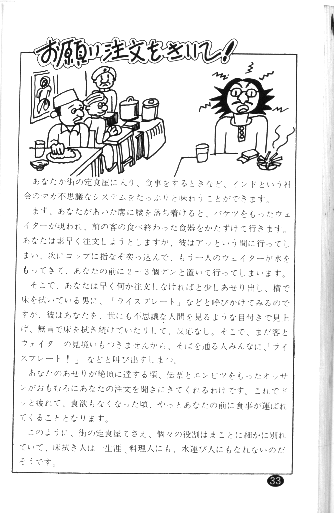 お願い注文をきいて!
あなたが街の定食屋に入り、食事をするときなど、インドという社
会のマカ不思議なシステムをたっぷりと味わうことができます。
まず、あなたがあいた席に腰を落ち着けると、バケツをもったウェ
イターが現われ、前の客の食べ終わった食器をかたずけて行きます。
あなたは素早く注文しようとしますが、彼はアッという間に行ってし
まい、次にコップに指を突っ込んで、もう一人のウェイターが水を
もってきて、あなたの前に置いて行ってしまいます。
そこで、あなたは早く何か注文しなければと少しあせり出し、横で
床を拭いている男に、「ライスプレート」などと呼びかけてみるので
すが、彼はあなたを、世にも不思議な人間を見るような目付きで見上
げ、無言で床を拭き続けていたりして、反応なし。そこで、まだ客と
ウェイターの見境いもつきませんから、そばを通る人みんなに、「ライ
スプレート!」などと叫び出します。
あなたのあせりが絶頂に達する頃、伝票とエンピツをもったオッサ
ンがおもむろにあなたの注文を聞きにきてくれるわけです。これでド
ッと疲れて、食欲もなくなった頃、やっとあなたの前に食事が運ばれ
てくることとなります。
このように、街の定食屋でさえ、個々の役割はまことに細かに別れ
ていて、床拭き人は一生涯、料理人にも、水運び人にもなれないのだ
そうです。
33